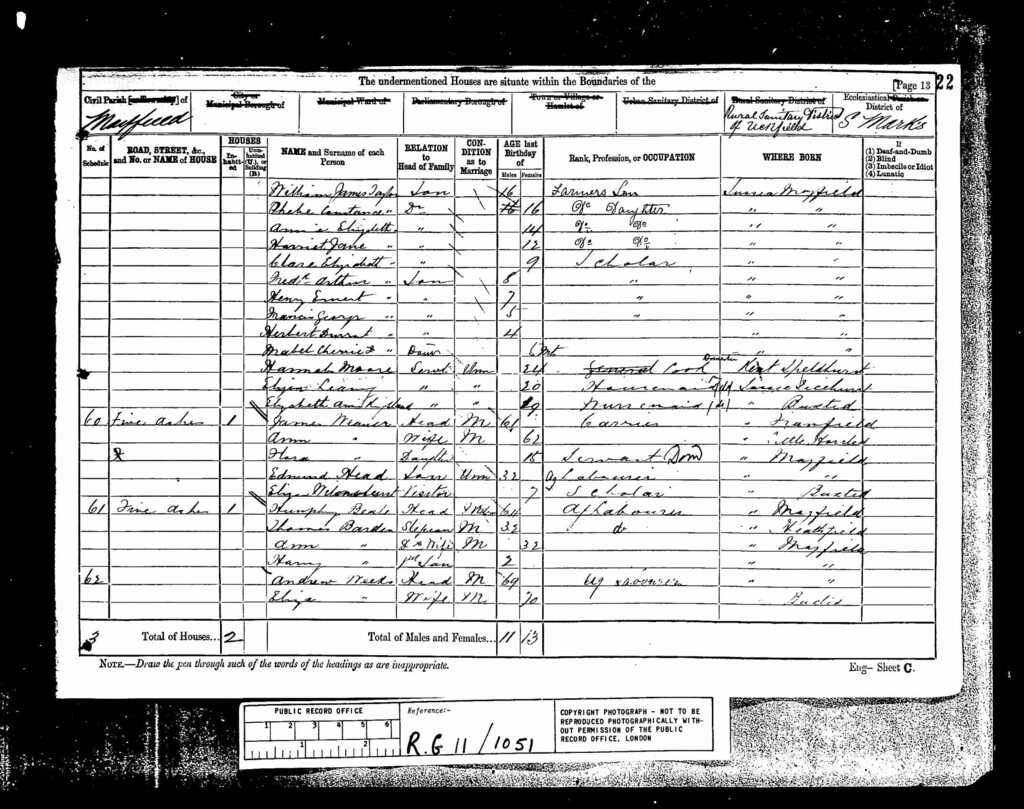 The undermentioned Houses are situate within the Boundaries of the
[Page 13 22
Civil Parish [or Township] of
Mayfield
City or Municipal Borough of
Municipal Ward of
Parliamentary Borough of
Town or Village or Hamlet of
Urban Sanitary District of
Rural Sanitary District of
Rural Sanitary District of Uckfield
Ecclesiastical Parish or District of
St Marks
No. of Schedule
ROAD, STREET, &c., and No. or NAME of HOUSE
HOUSES
Inhabited
Uninhabited (U.), or Building (B.)
NAME and Surname of each Person
RELATION to Head of Family
CONDITION as to Marriage
AGE last Birthday of
Males Females
Rank, Profession, or OCCUPATION
WHERE BORN
If (1) Deaf-and-Dumb (2) Blind (3) Imbecile or Idiot (4) Lunatic
William James Taylor Son 16 Farmers Son Sussex Mayfield
Phebe Constance " Dr 16 Do Daughter " "
Annie Elizabeth " " 14 Do Do " "
Harriet Jane " " 12 Do Do " "
Clara " " 9 Scholar " "
Fredk Arthur " Son 8 " " "
Henry Ernest " " 7 " " "
Francis George " " 5 " " "
Herbert " " 4 " "
Mabel " Daur 6 Mt " "
Hannah Moore Servt Unm 24 General Cook Domestic Kent Speldhurst
" " 20 Housemaid Sussex
Elizabeth Ann " " 19 Nursemaid " Buxted
60 Five Ashes 1 James Weaver Head M 61 Carrier " Framfield
Ann " Wife M 62 " Little Horsted
Flora " Daughter 15 Servant Dom " Mayfield
Edmund Head Unm 32 Ag Labourer " "
Eliza Visitor 7 Scholar " Buxted
61 Five Ashes 1 Humphry Beale Head 64 Ag Labourer " Mayfield
Thomas Barden Stepson M 32 do " Heathfield
Ann " Wife M 32 " Mayfield
Harry " Son 2 " "
62 Andrew Weeks Head M 69 Ag Labourer " "
Eliza " Wife M 70 Buxted
3 Total of Houses... 2 Total of Males and Females... 11 13
NOTE.—Draw the pen through such of the words of the headings as are inappropriate.
Eng— Sheet C.
PUBLIC RECORD OFFICE
1 2 3 4 5 6
1 2
Reference:-
R.G 11/1051
COPYRIGHT PHOTOGRAPH - NOT TO BE
REPRODUCED PHOTOGRAPHICALLY WITH-
OUT PERMISSION OF THE PUBLIC
RECORD OFFICE, LONDON